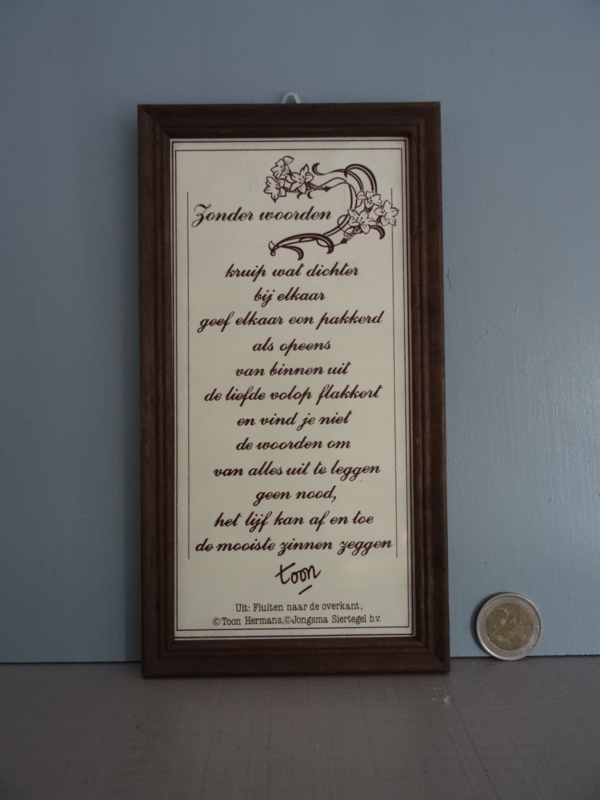 Zonder woorden
kruip wat dichter
bij elkaar
geef elkaar een pakkerd
als opeens
van binnen uit
de liefde volop flakkert
en vind je niet
de woorden om
van alles uit te leggen
geen nood,
het lijf kan af en toe
de mooiste zinnen zeggen
toon
Uit: Fluiten naar de overkant.
©Toon Hermans,©Jongsma Siertegel b.v.